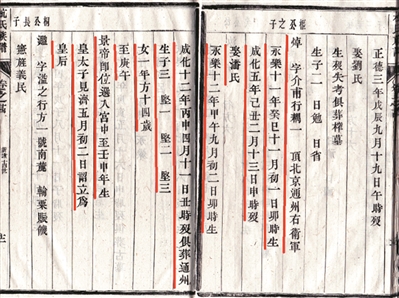 正德三年戊辰九月十九日午時歿
娶劉氏
生歿失考俱葬祥墓
生子二曰勉曰省
字介甫行 一頂北京通州右衛軍
永樂十一年癸巳十一月初一日卯時生
成化五年己丑二月十三日申時歿
娶潘氏
永樂十二年甲午九月初二日卯時生
成化十二年丙申四月十一日丑時歿俱葬通州
生子三 堅一 堅二 堅三
女一年方十四歲
至庚午
景帝即位選入宮中至壬申年生
皇太子見濟五月初二日詔立為
皇后
字溢之行方一號南薰 輸粟賑饑
憲旌義民
氏族譜